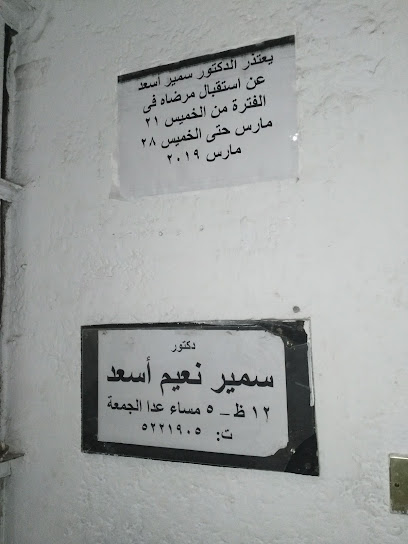 يعتذر الدكتور سمير أسعد
عن استقبال مرضاه فى
الفترة من الخميس ٢١
مارس حتى الخميس ٢٨
مارس ٢٠١٩
دكتور
سمير نعيم أسعد
١٢ ظ - ٥ مساء عدا الجمعة
ت: ٥٢٢١٩٠٥